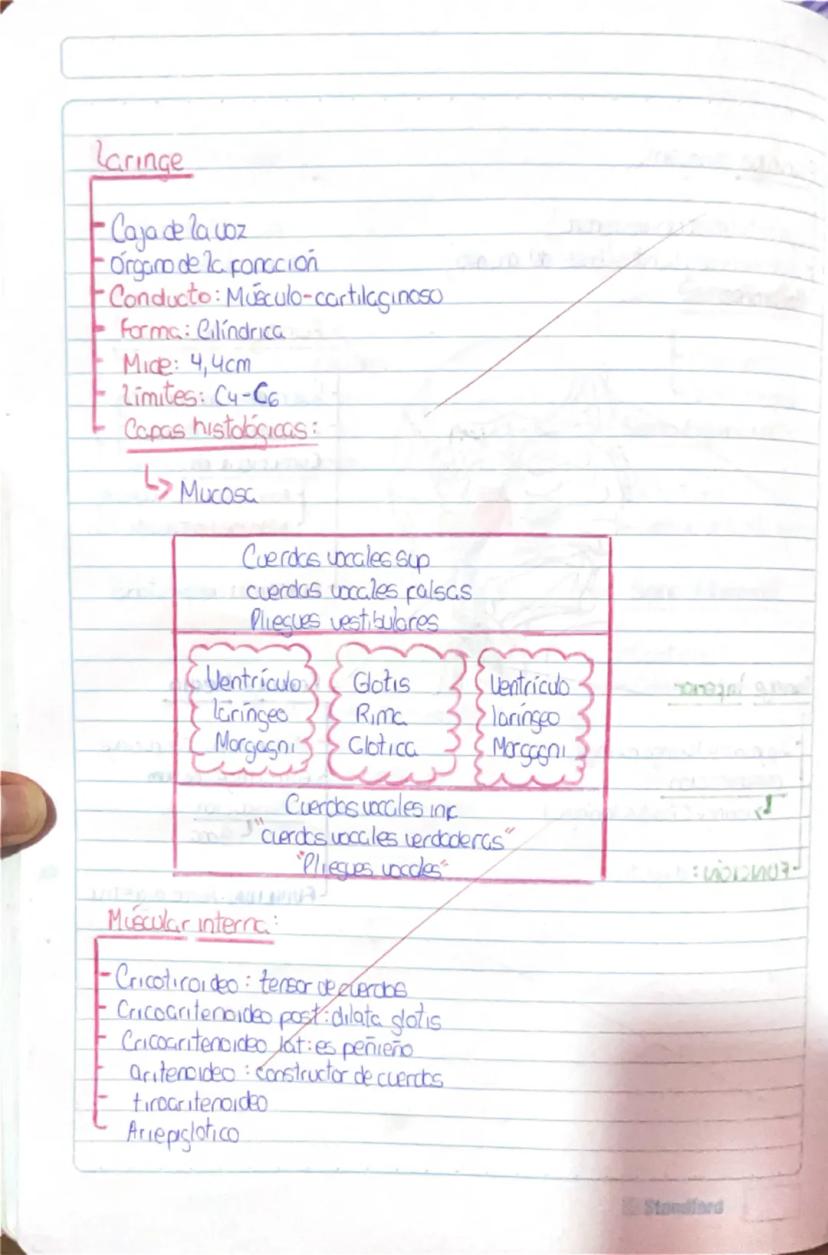 Laringe
Caja de la voz
Órgano de la fonación
Conducto: Músculo-cartilaginoso
Forma: Cilíndrica
Mide: 4,4cm
Límites: C4-C6
Capas histológicas:
Mucosa
Cuerdas vocales sup
cuerdas vocales falsas
Pliegues vestibulares
Ventrículo
laríngeo
Morgagni
Glotis
Rima
Glotica
Ventrículo
laríngeo
Morgagni
Cuerdas vocales inf
"cuerdas vocales verdaderas"
"Pliegues vocales"
Múscular interna:
Cricotiroideo: tensor de cuerdas
Cricoaritenoideo post: dilata glotis
Cricoaritenoideo lat: es peñieño
aritenoideo: constructor de cuerdas
tiroaritenoideo
Ariepiglotico
Standford